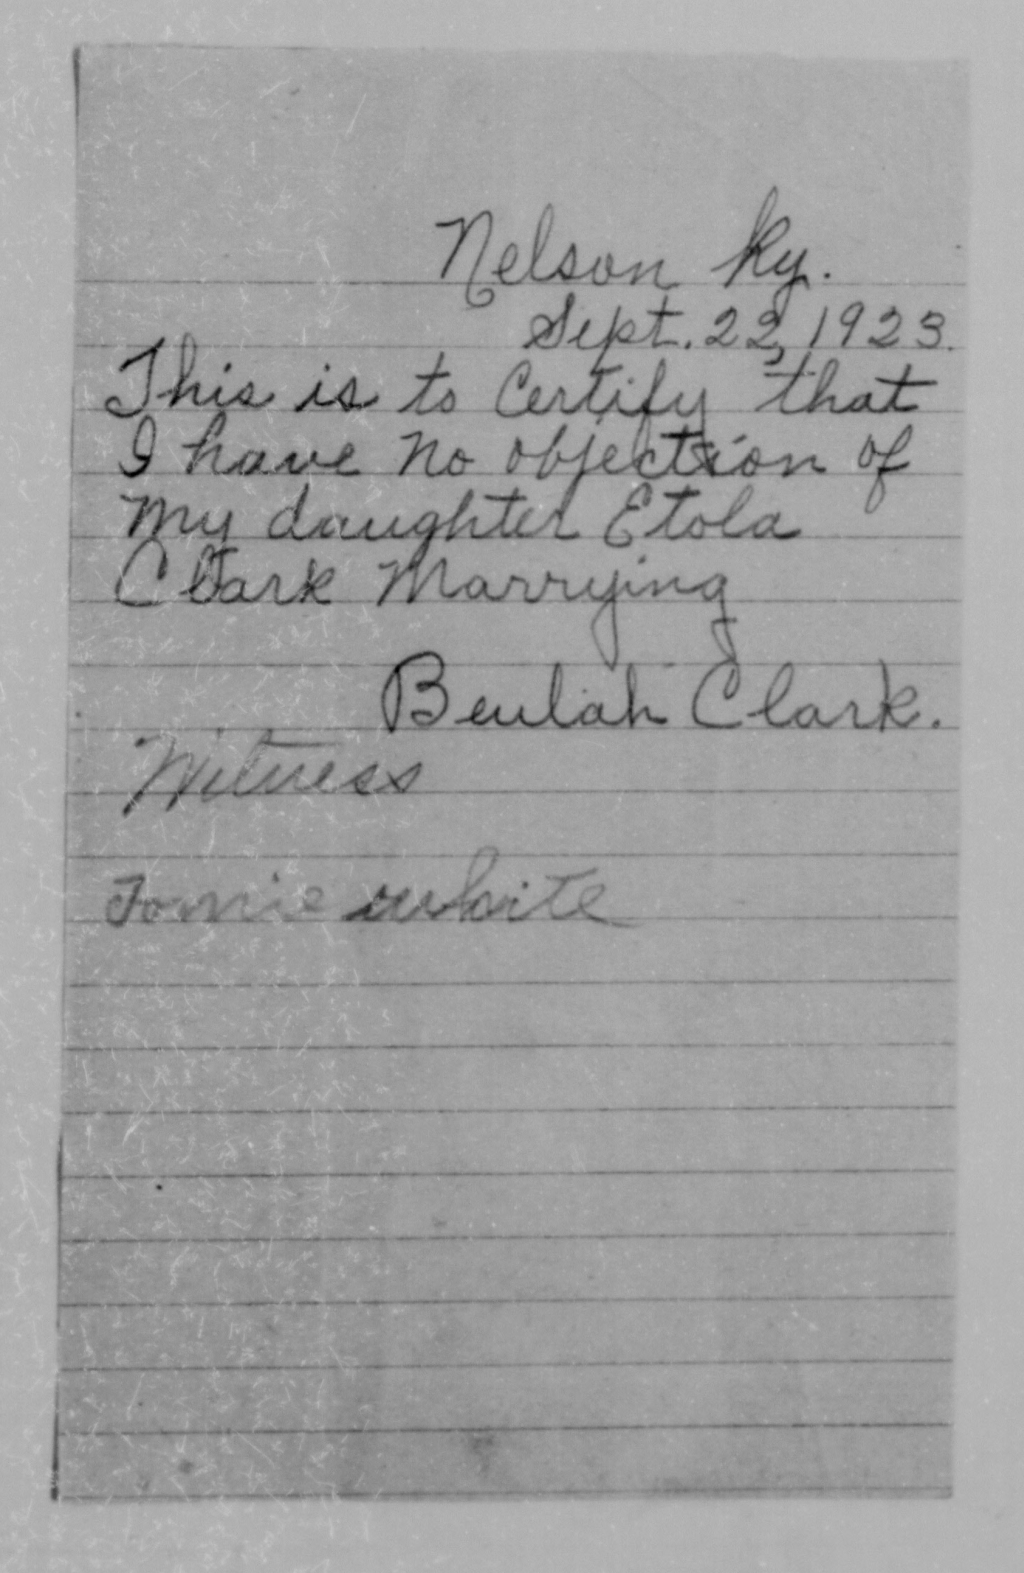 Nelson Ky.
Sept. 22, 1923.
This is to Certify that
I have no objection of
My daughter Etola
Clark Marrying
Beulah Clark.
Witness
Tomie white